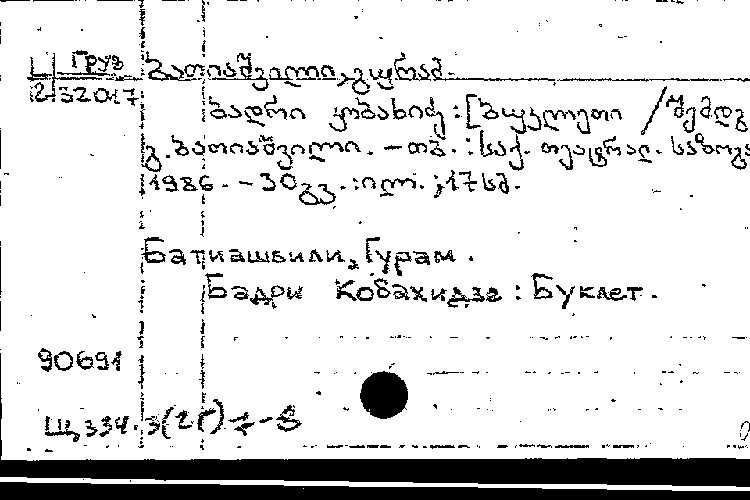 Ц Груз ბათიაშვილი, გურამ.
2|32017
ბადრი კობახიძე : [ბუკლეტი / შემდგ
გ. ბათიაშვილი. – თბ. : საქ. თეატრალ. საზოგა
1986. – 30გვ. : ილ. ; 17სმ.
Батиашвили, Гурам.
Бадри Кобахидзе : Буклет.
90691
Щ334.3(2Г)7-8